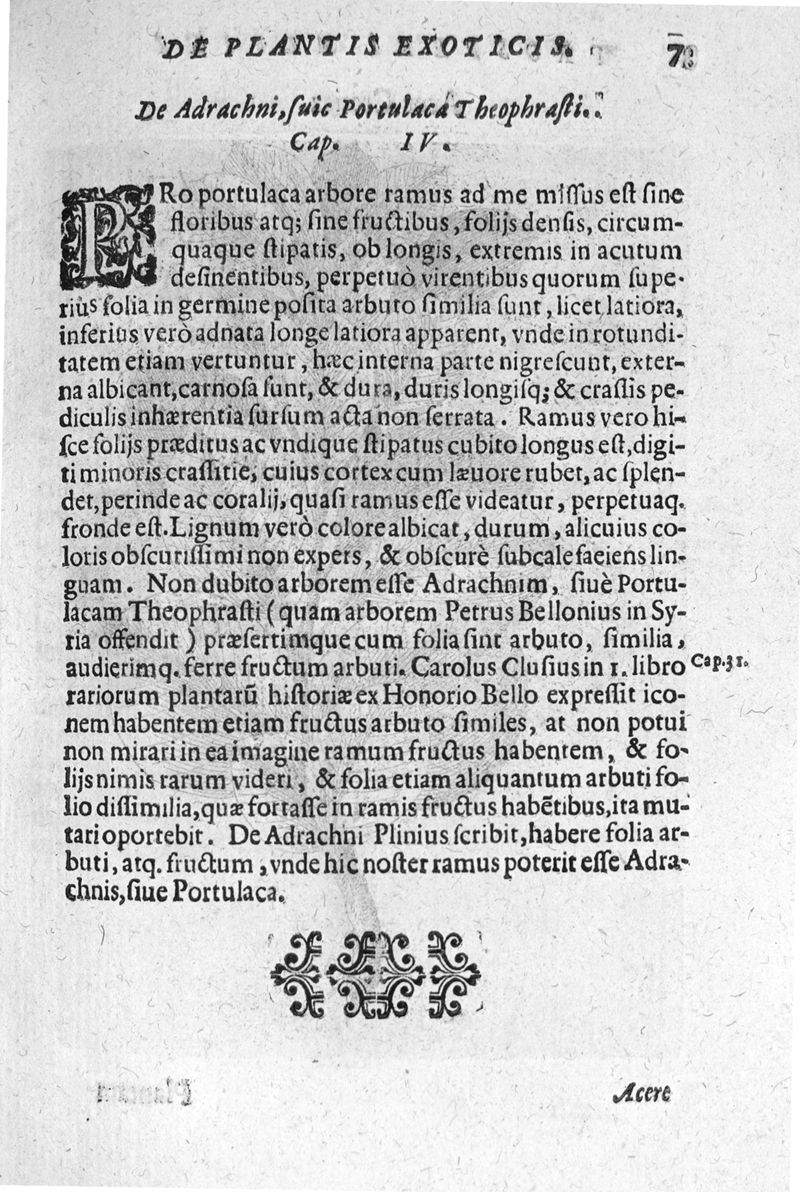 DE PLANTIS EXOTICIS. 7
De Adrachni, ſuie Portulaca Theophraſti.
Cap. IV.
PRo portulaca arbore ramus ad me miſſus eſt ſine
floribus atq; ſine fructibus, folijs denſis, circum-
quaque ſtipatis, oblongis, extremis in acutum
deſinentibus, perpetuò virentibus quorum ſupe-
rius folia in germine poſita arbuto ſimilia ſunt, licet latiora,
inferius verò adnata longe latiora apparent, vnde in rotundi-
tatem etiam vertuntur, hæc interna parte nigreſcunt, exter-
na albicant, carnoſa ſunt, & dura, duris longiſq; & craſſis pe-
diculis inhærentia ſurſum acta non ſerrata. Ramus vero hi-
ſce folijs præditus ac vndique ſtipatus cubito longus eſt, digi-
ti minoris craſſitie, cuius cortex cum læuore rubet, ac ſplen-
det, perinde ac coralij, quaſi ramus eſſe videatur, perpetuaq.
fronde eſt. Lignum verò colore albicat, durum, alicuius co-
loris obſcuriſſimi non expers, & obſcurè ſubcalefaeiens lin-
guam. Non dubito arborem eſſe Adrachnim, ſiuè Portu-
lacam Theophraſti (quam arborem Petrus Bellonius in Sy-
ria offendit) præſertimque cum folia ſint arbuto, ſimilia,
audierimq. ferre fructum arbuti. Carolus Cluſius in 1. libro Cap. 31.
rariorum plantarũ hiſtoriæ ex Honorio Bello expreſſit ico-
nem habentem etiam fructus arbuto ſimiles, at non potui
non mirari in ea imagine ramum fructus habentem, & fo-
lijs nimis rarum videri, & folia etiam aliquantum arbuti fo-
lio diſſimilia, quæ fortaſſe in ramis fructus habẽtibus, ita mu-
tari oportebit. De Adrachni Plinius ſcribit, habere folia ar-
buti, atq. fructum, vnde hic noſter ramus poterit eſſe Adra-
chnis, ſiue Portulaca.
Acere